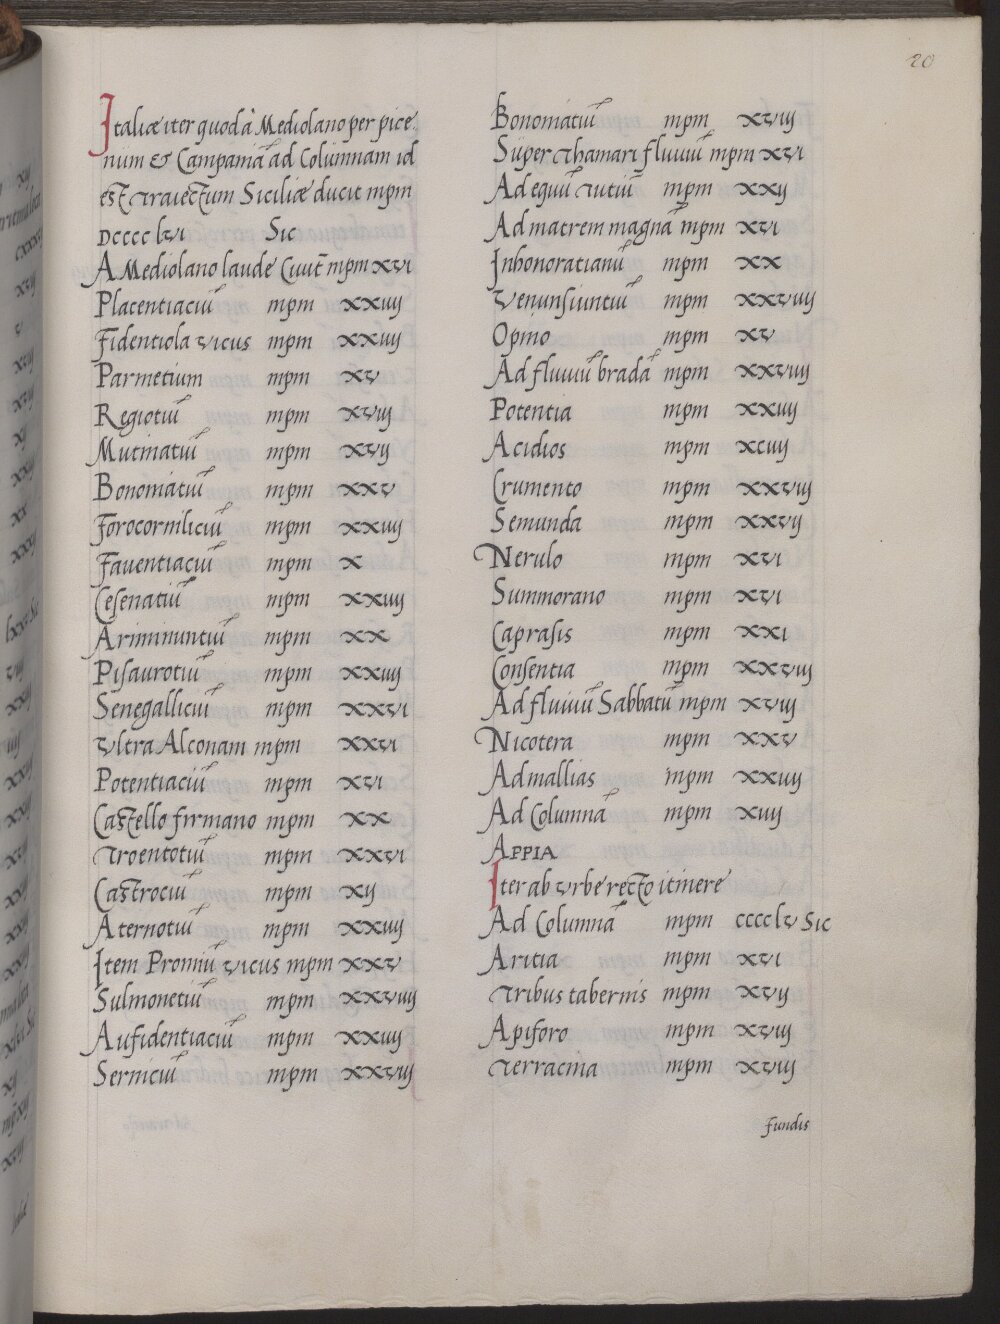 20
Italiæ iter quod à Mediolano per pice
num & Campaniã ad Columnam id
est traiectum Siciliæ ducit mpm
Dcccc lvi Sic
A Mediolano laude Ciuit̃ mpm xvi
Placentiaciũ mpm xxiiij
Fidentiola vicus mpm xxiiij
Parmetium mpm xv
Regiotiũ mpm xviij
Mutinatiũ mpm xvij
Bononiatiũ mpm xxv
Forocorniliciũ mpm xxiiij
Fauentiaciũ mpm x
Cesenatiũ mpm xxiiij
Ariminuntiũ mpm xx
Pisaurotiũ mpm xxiiij
Senegalliciũ mpm xxvi
Vltra Alconam mpm xxvi
Potentiaciũ mpm xvi
Castello firmano mpm xx
Troentotiũ mpm xxvi
Castrociũ mpm xij
Aternotiũ mpm xxiiij
Item Promiũ vicus mpm xxv
Sulmonetiũ mpm xxviiij
Aufidentiaciũ mpm xxiiij
Serniciũ mpm xxviij
Bononiatiũ mpm xviij
Super Thamari fluuiũ mpm xvi
Ad equũ Tutiũ mpm xxij
Ad matrem magnã mpm xvi
Inhonoratianũ mpm xx
Venunsiuntiũ mpm xxviiij
Opino mpm xv
Ad fluuiũ bradã mpm xxviiij
Potentia mpm xxiiij
Acidios mpm xciiij
Crumento mpm xxviij
Semunda mpm xxvij
Nerulo mpm xvi
Summorano mpm xvi
Caprasis mpm xxi
Consentia mpm xxviij
Ad fluuiũ Sabbatũ mpm xviij
Nicotera mpm xxv
Admallias mpm xxiiij
Ad Columnã mpm xiiij
APPIA
Iter ab vrbe recto itinere
Ad Columnã mpm cccclv Sic
Aritia mpm xvi
Tribus tabernis mpm xvij
Apiforo mpm xviij
Terracina mpm xviij
fundis